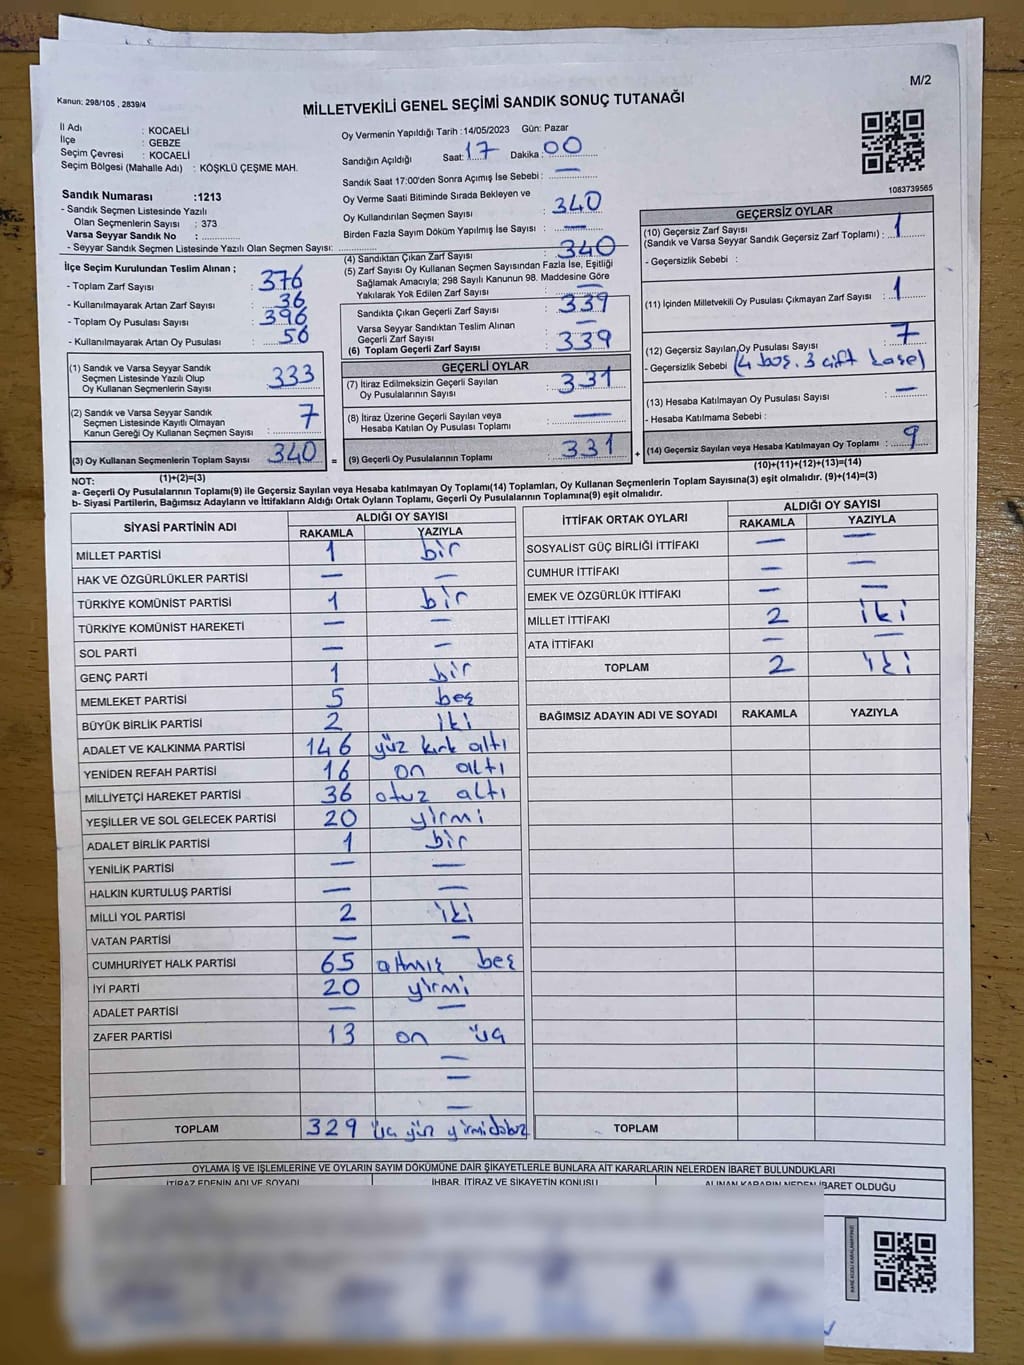 M/2
Kanun: 298/105 , 2839/4
MİLLETVEKİLİ GENEL SEÇİMİ SANDIK SONUÇ TUTANAĞI
İl Adı : KOCAELİ
İlçe : GEBZE
Seçim Çevresi : KOCAELİ
Seçim Bölgesi (Mahalle Adı) : KÖŞKLÜ ÇEŞME MAH.
Sandık Numarası :1213
- Sandık Seçmen Listesinde Yazılı
Olan Seçmenlerin Sayısı : 373
Varsa Seyyar Sandık No :
- Seyyar Sandık Seçmen Listesinde Yazılı Olan Seçmen Sayısı:
Oy Vermenin Yapıldığı Tarih :14/05/2023 Gün: Pazar
Sandığın Açıldığı Saat: 17 Dakika : 00
Sandık Saat 17:00'den Sonra Açımış İse Sebebi : —
Oy Verme Saati Bitiminde Sırada Bekleyen ve
Oy Kullandırılan Seçmen Sayısı : 340
Birden Fazla Sayım Döküm Yapılmış İse Sayısı : —
1083739565
İlçe Seçim Kurulundan Teslim Alınan ;
- Toplam Zarf Sayısı : 376
- Kullanılmayarak Artan Zarf Sayısı : 36
- Toplam Oy Pusulası Sayısı : 396
- Kullanılmayarak Artan Oy Pusulası : 56
(1) Sandık ve Varsa Seyyar Sandık
Seçmen Listesinde Yazılı Olup
Oy Kullanan Seçmenlerin Sayısı : 333
(2) Sandık ve Varsa Seyyar Sandık
Seçmen Listesinde Kayıtlı Olmayan
Kanun Gereği Oy Kullanan Seçmen Sayısı : 7
(3) Oy Kullanan Seçmenlerin Toplam Sayısı : 340
(1)+(2)=(3)
(4) Sandıktan Çıkan Zarf Sayısı : 340
(5) Zarf Sayısı Oy Kullanan Seçmen Sayısından Fazla İse, Eşitliği
Sağlamak Amacıyla; 298 Sayılı Kanunun 98. Maddesine Göre
Yakılarak Yok Edilen Zarf Sayısı : —
Sandıkta Çıkan Geçerli Zarf Sayısı : 339
Varsa Seyyar Sandıktan Teslim Alınan
Geçerli Zarf Sayısı : —
(6) Toplam Geçerli Zarf Sayısı : 339
GEÇERLİ OYLAR
(7) İtiraz Edilmeksizin Geçerli Sayılan
Oy Pusulasının Sayısı : 331
(8) İtiraz Üzerine Geçerli Sayılan veya
Hesaba Katılan Oy Pusulası Toplamı : —
= (9) Geçerli Oy Pusulalarının Toplamı : 331
GEÇERSİZ OYLAR
(10) Geçersiz Zarf Sayısı
(Sandık ve Varsa Seyyar Sandık Geçersiz Zarf Toplamı) : 1
- Geçersizlik Sebebi :
(11) İçinden Milletvekili Oy Pusulası Çıkmayan Zarf Sayısı : 1
(12) Geçersiz Sayılan Oy Pusulası Sayısı : 7
- Geçersizlik Sebebi (4 boş, 3 çift kaşe)
(13) Hesaba Katılmayan Oy Pusulası Sayısı : —
- Hesaba Katılmama Sebebi :
+ (14) Geçersiz Sayılan veya Hesaba Katılmayan Oy Toplamı : 9
(10)+(11)+(12)+(13)=(14)
NOT:
a- Geçerli Oy Pusulalarının Toplamı(9) ile Geçersiz Sayılan veya Hesaba katılmayan Oy Toplamı(14) Toplamları, Oy Kullanan Seçmenlerin Toplam Sayısına(3) eşit olmalıdır. (9)+(14)=(3)
b- Siyasi Partilerin, Bağımsız Adayların ve İttifakların Aldığı Ortak Oyların Toplamı, Geçerli Oy Pusulalarının Toplamına(9) eşit olmalıdır.
SİYASİ PARTİNİN ADI ALDIĞI OY SAYISI
RAKAMLA YAZIYLA
MİLLET PARTİSİ 1 bir
HAK VE ÖZGÜRLÜKLER PARTİSİ — —
TÜRKİYE KOMÜNİST PARTİSİ 1 bir
TÜRKİYE KOMÜNİST HAREKETİ — —
SOL PARTİ — —
GENÇ PARTİ 1 bir
MEMLEKET PARTİSİ 5 beş
BÜYÜK BİRLİK PARTİSİ 2 iki
ADALET VE KALKINMA PARTİSİ 146 yüz kırk altı
YENİDEN REFAH PARTİSİ 16 on altı
MİLLİYETÇİ HAREKET PARTİSİ 36 otuz altı
YEŞİLLER VE SOL GELECEK PARTİSİ 20 yirmi
ADALET BİRLİK PARTİSİ 1 bir
YENİLİK PARTİSİ — —
HALKIN KURTULUŞ PARTİSİ — —
MİLLİ YOL PARTİSİ 2 iki
VATAN PARTİSİ — —
CUMHURİYET HALK PARTİSİ 65 altmış beş
İYİ PARTİ 20 yirmi
ADALET PARTİSİ — —
ZAFER PARTİSİ 13 on üç
—
—
—
TOPLAM 329 üç yüz yirmidokuz
İTTİFAK ORTAK OYLARI ALDIĞI OY SAYISI
RAKAMLA YAZIYLA
SOSYALİST GÜÇ BİRLİĞİ İTTİFAKI — —
CUMHUR İTTİFAKI — —
EMEK VE ÖZGÜRLÜK İTTİFAKI — —
MİLLET İTTİFAKI 2 iki
ATA İTTİFAKI — —
TOPLAM 2 iki
BAĞIMSIZ ADAYIN ADI VE SOYADI RAKAMLA YAZIYLA
TOPLAM
OYLAMA İŞ VE İŞLEMLERİNE VE OYLARIN SAYIM DÖKÜMÜNE DAİR ŞİKAYETLERLE BUNLARA AİT KARARLARIN NELERDEN İBARET BULUNDUKLARI
İTİRAZ EDENİN ADI VE SOYADI İHBAR, İTİRAZ VE ŞİKAYETİN KONUSU ALINAN KARARIN NEDEN İBARET OLDUĞU